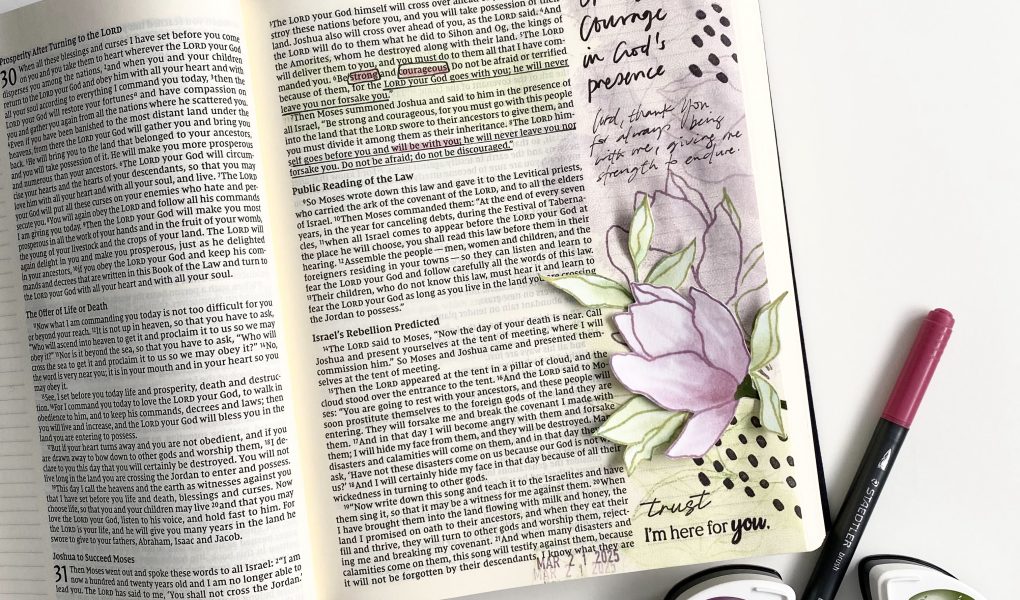 Prosperity After Turning to the LORD
30 When all these blessings and curses I have set before you come
on you and you take them to heart wherever the LORD your God
disperses you among the nations, ²and when you and your children
return to the LORD your God and obey him with all your heart and with
all your soul according to everything I command you today, ³then the
LORD your God will restore your fortunes and have compassion on
you and gather you again from all the nations where he scattered you.
⁴Even if you have been banished to the most distant land under the
heavens, from there the LORD your God will gather you and bring you
back. ⁵He will bring you to the land that belonged to your ancestors,
and you will take possession of it. He will make you more prosperous
and numerous than your ancestors. ⁶The LORD your God will circum-
cise your hearts and the hearts of your descendants, so that you may
love him with all your heart and with all your soul, and live. ⁷The LORD
your God will put all these curses on your enemies who hate and per-
secute you. ⁸You will again obey the LORD and follow all his commands
I am giving you today. ⁹Then the LORD your God will make you most
prosperous in all the work of your hands and in the fruit of your womb,
the young of your livestock and the crops of your land. The LORD will
again delight in you and make you prosperous, just as he delighted
in your ancestors, ¹⁰if you obey the LORD your God and keep his com-
mands and decrees that are written in this Book of the Law and turn to
the LORD your God with all your heart and with all your soul.
The Offer of Life or Death
¹¹Now what I am commanding you today is not too difficult for you
or beyond your reach. ¹²It is not up in heaven, so that you have to ask,
“Who will ascend into heaven to get it and proclaim it to us so we may
obey it?” ¹³Nor is it beyond the sea, so that you have to ask, “Who will
cross the sea to get it and proclaim it to us so we may obey it?” ¹⁴No,
the word is very near you; it is in your mouth and in your heart so you
may obey it.
¹⁵See, I set before you today life and prosperity, death and destruc-
tion. ¹⁶For I command you today to love the LORD your God, to walk in
obedience to him, and to keep his commands, decrees and laws; then
you will live and increase, and the LORD your God will bless you in the
land you are entering to possess.
¹⁷But if your heart turns away and you are not obedient, and if you
are drawn away to bow down to other gods and worship them, ¹⁸I de-
clare to you this day that you will certainly be destroyed. You will not
live long in the land you are crossing the Jordan to enter and possess.
¹⁹This day I call the heavens and the earth as witnesses against you
that I have set before you life and death, blessings and curses. Now
choose life, so that you and your children may live ²⁰and that you may
love the LORD your God, listen to his voice, and hold fast to him. For
the LORD is your life, and he will give you many years in the land he
swore to give to your fathers, Abraham, Isaac and Jacob.
Joshua to Succeed Moses
31 Then Moses went out and spoke these words to all Israel: ²“I am
now a hundred and twenty years old and I am no longer able to
lead you. The LORD has said to me, ‘You shall not cross the Jordan.’
³The LORD your God himself will cross over ahead of
stroy these nations before you, and you will take possession of their
land. Joshua also will cross over ahead of you, as the LORD said. ⁴And
the LORD will do to them what he did to Sihon and Og, the kings of
the Amorites, whom he destroyed along with their land. ⁵The LORD
will deliver them to you, and you must do to them all that I have com-
manded you. ⁶Be strong and courageous. Do not be afraid or terrified
because of them, for the LORD your God goes with you; he will never
leave you nor forsake you.”
⁷Then Moses summoned Joshua and said to him in the presence of
all Israel, “Be strong and courageous, for you must go with this people
into the land that the LORD swore to their ancestors to give them, and
you must divide it among them as their inheritance. ⁸The LORD him-
self goes before you and will be with you; he will never leave you nor
forsake you. Do not be afraid; do not be discouraged.”
Public Reading of the Law
⁹So Moses wrote down this law and gave it to the Levitical priests,
who carried the ark of the covenant of the LORD, and to all the elders
of Israel. ¹⁰Then Moses commanded them: “At the end of every seven
years, in the year for canceling debts, during the Festival of Taberna-
cles, ¹¹when all Israel comes to appear before the LORD your God at
the place he will choose, you shall read this law before them in their
hearing. ¹²Assemble the people — men, women and children, and the
foreigners residing in your towns — so they can listen and learn to
fear the LORD your God and follow carefully all the words of this law.
¹³Their children, who do not know this law, must hear it and learn to
fear the LORD your God as long as you live in the land you are crossing
the Jordan to possess.”
Israel’s Rebellion Predicted
¹⁴The LORD said to Moses, “Now the day of your death is near. Call
Joshua and present yourselves at the tent of meeting, where I will
commission him.” So Moses and Joshua came and presented them-
selves at the tent of meeting.
¹⁵Then the LORD appeared at the tent in a pillar of cloud, and the
cloud stood over the entrance to the tent. ¹⁶And the LORD said to Mo-
ses: “You are going to rest with your ancestors, and these people will
soon prostitute themselves to the foreign gods of the land they are
entering. They will forsake me and break the covenant I made with
them. ¹⁷And in that day I will become angry with them and forsake
them; I will hide my face from them, and they will be destroyed. Many
disasters and calamities will come on them, and in that day they will
ask, ‘Have not these disasters come on us because our God is not with
us?’ ¹⁸And I will certainly hide my face in that day because of all their
wickedness in turning to other gods.
¹⁹“Now write down this song and teach it to the Israelites and have
them sing it, so that it may be a witness for me against them. ²⁰When
I have brought them into the land flowing with milk and honey, the
land I promised on oath to their ancestors, and when they eat their
fill and thrive, they will turn to other gods and worship them, reject-
ing me and breaking my covenant. ²¹And when many disasters and
calamities come on them, this song will testify against them, because
it will not be forgotten by their descendants. I know what they are
Courage
in God's
presence
Lord, thank you
for always being
with me, giving me
strength to endure.
trust
I'm here for you.
MAR 2 1 2025
MAR 2 1 2025
STAEDTLER
brush